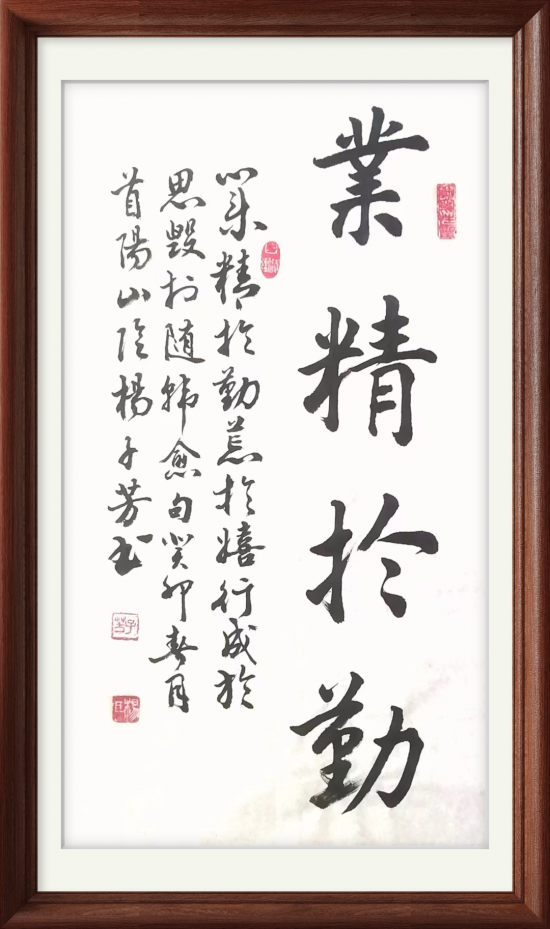 業精於勤
業精於勤荒於嬉行成於
思毀於随韩愈句癸卯春月
首陽山陰楊子芳书